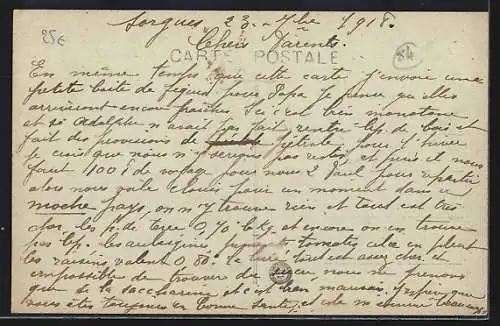 25€
84
Sorgues 23 7bre 1918.
CARTE POSTALE
Chers Parents.
En même temps que cette carte j'envoie une
petite boîte de figues pour Papa je pense qu'elles
arriveront encore fraîches. Ici c'est très monotone
et si Adolphe n'avait pas fait rentrer bp. de bois et
fait des provisions de pétrole pour l'hiver
je crois que nous n'y serions pas restés et puis il nous
faut 100 f de voyage pour nous 2 Paul pour repartir
alors nous voilà cloués pour un moment dans ce
moche pays, on n'y trouve rien et tout est très
cher, les p. de terre 0,70 le Kg et encore on en trouve
pas bp. les aubergines, tomates cela en pleut
les raisins valent 0,80 le tout est assez cher et
impossible de trouver du sucre, nous ne prenons
que de la saccharine et c'est bien mauvais. J'espère que
vous êtes toujours en bonne santé, et